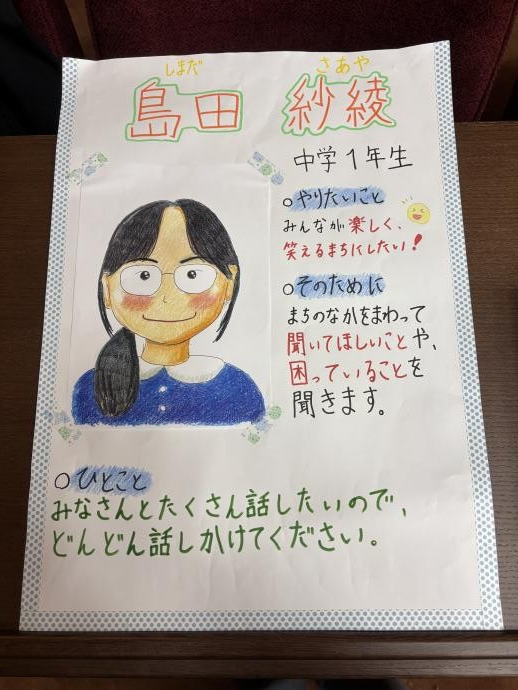 しまだ さあや
島田 紗綾
中学1年生
○やりたいこと
みんなが楽しく、
笑えるまちにしたい!
○そのために
まちのなかをまわって
聞いてほしいことや、
困っていることを
聞きます。
○ひとこと
みなさんとたくさん話したいので、
どんどん話しかけてください。